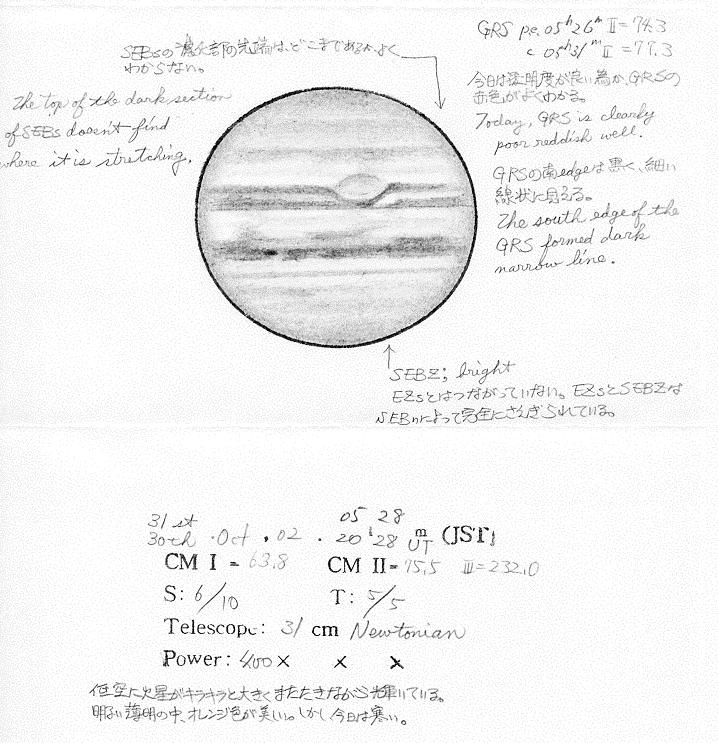 SEBsの濃化部の先端は、どこまであるか、よく
わからない。
The top of the dark section
of SEBs doesn't find
where it is stretching.
GRS p.e. 05h26m II=74.3
c 05h31m II=77.3
今日は透明度が良い為か、GRSの
赤色がよくわかる。
Today, GRS is clearly
poor reddish well.
GRSの南edgeは黒く、細い
線状に見える。
The south edge of the
GRS formed dark
narrow line.
SEBZ; bright
EZsとはつながっていない。EZsとSEBZは
SEBnによって完全にさえぎられている。
31st 05 28
30th ・Oct ・02 ・20h28m UT (JST)
CM I = 63.8 CM II= 75.5 III=232.0
S: 6/10 T: 5/5
Telescope: 31 cm Newtonian
Power: 400× × ×
低空に火星がキラキラと大きくまたたきながら輝いている。
明るい薄明の中、オレンジ色が美しい。しかし今日は寒い。